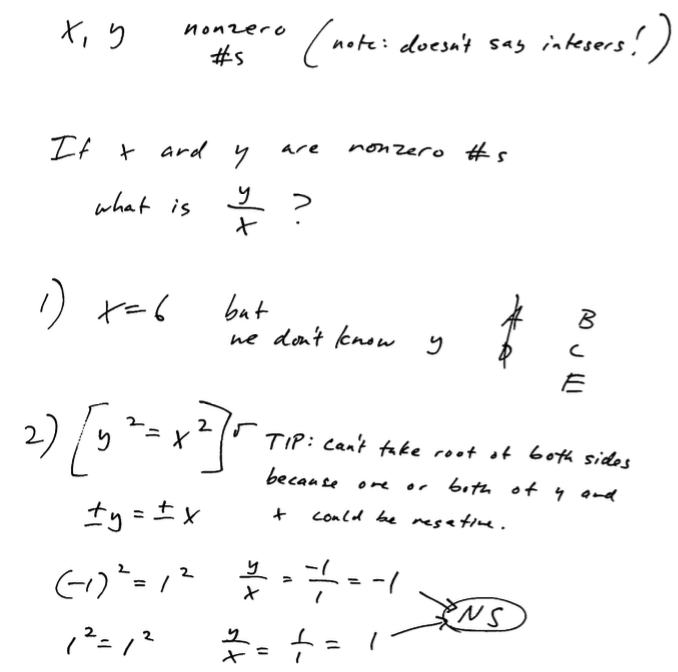 x, y nonzero #s (note: doesn't say integers!)
If x and y are nonzero #s
what is y/x ?
1) x=6 but we don't know y A D B C E
2) [y²=x²]√ TIP: can't take root of both sides
because one or both of y and
±y = ±x x could be negative.
(-1)²=1² y/x = -1/1 = -1
NS
1²=1² y/x = 1/1 = 1